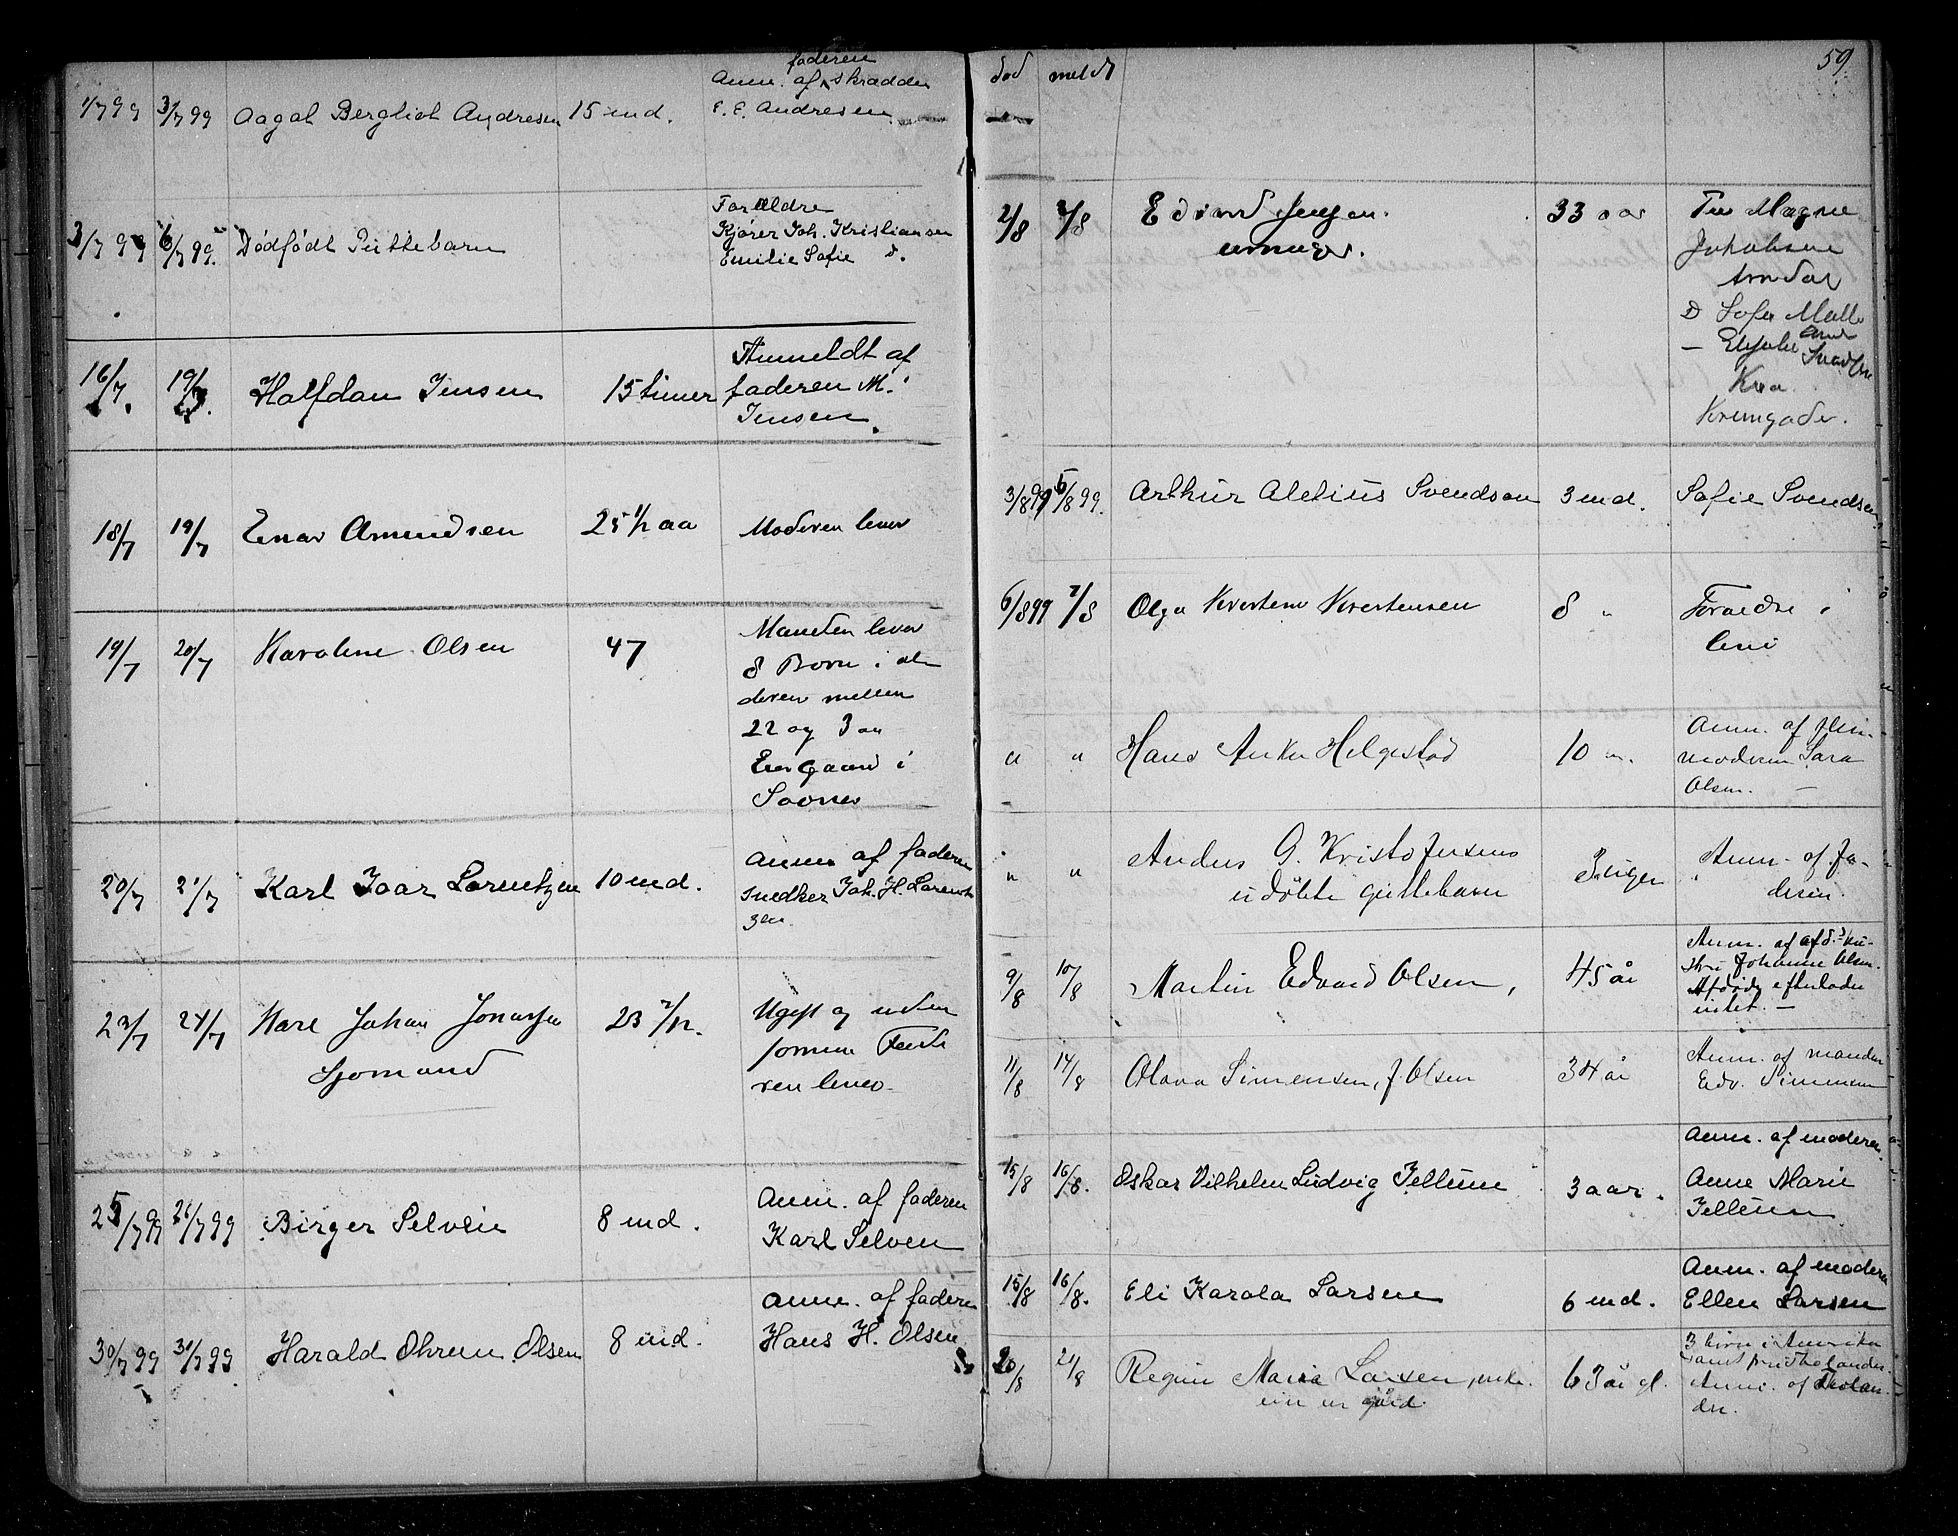 faderen
1/7 99 3/7 99 Aagot Bergliot Andresen 15 md. Anm. af skrædder
E. Andresen
3/7 99 6/7 99. Dødfødt Guttebarn Forældre
Kjører Joh. Kristiansen
Emilie Sofie d.
16/7 19/7 Halfdan Jensen 15 timer Anmeldt af
faderen M.
Jensen.
18/7 19/7 Einar Amundsen 25 1/2 aa Moderen lever
19/7 20/7 Karoline Olsen 47 Manden lever
8 Børn i al
deren mellem
22 og 3 aa
Eier Gaard i
Sogner
20/7 21/7 Karl Ivar Lorentzen 10 md. Anm. af faderen
Snedker Joh. H. Lorent
zen.
23/7 24/7 Karl Johan Jonassen 23 7/12. Ugift og uden
Sjømand formue
ren lever
25/7 99 26/7 99 Birger Selven 8 md. Anm. af faderen
Karl Selven
30/7 99 31/7 99 Harald Ohren Olsen 8 md. Anm. af faderen
Hans H. Olsen
død meldt 59
2/8 3/8 33 aar Magne
Jakobsen
Arndal
D Sofie
Kra.
3/8 99 5/8 99. Arthur Aletius Svendsen 3 md. Sofie Svendsen
6/8 99 7/8 Olga Kristine Kristensen 8 " Foreldre i
live
" " Hans Anker Helgestad 10 m. Anm. af Plei-
moderen Sara
Olsen. —
" " Anders G. Kristofersens 3 uger Anm. af fa-
udøbte guttebarn deren.
9/8 10/8 Martin Edvard Olsen, 45 år Anm. af afd.s hu-
stru Johanne Olsen.
Afdøde efterlader
intet. —
11/8 14/8 Olava Simensen, f. Olsen 34 år Anm. af manden
Edv. Simensen
15/8 16/8. Oskar Vilhelm Ludvig Jellum 3 aar. Anm. af moderen
Anne Marie
Jellum
15/8 16/8. Eli Karola Larsen 6 md. Anm. af moderen
Ellen Larsen
20/8 21/8 Regine Maria Larsen, enke. 63 år gl. 3 børn i Amerika
eier en gård. samt
Anm. af